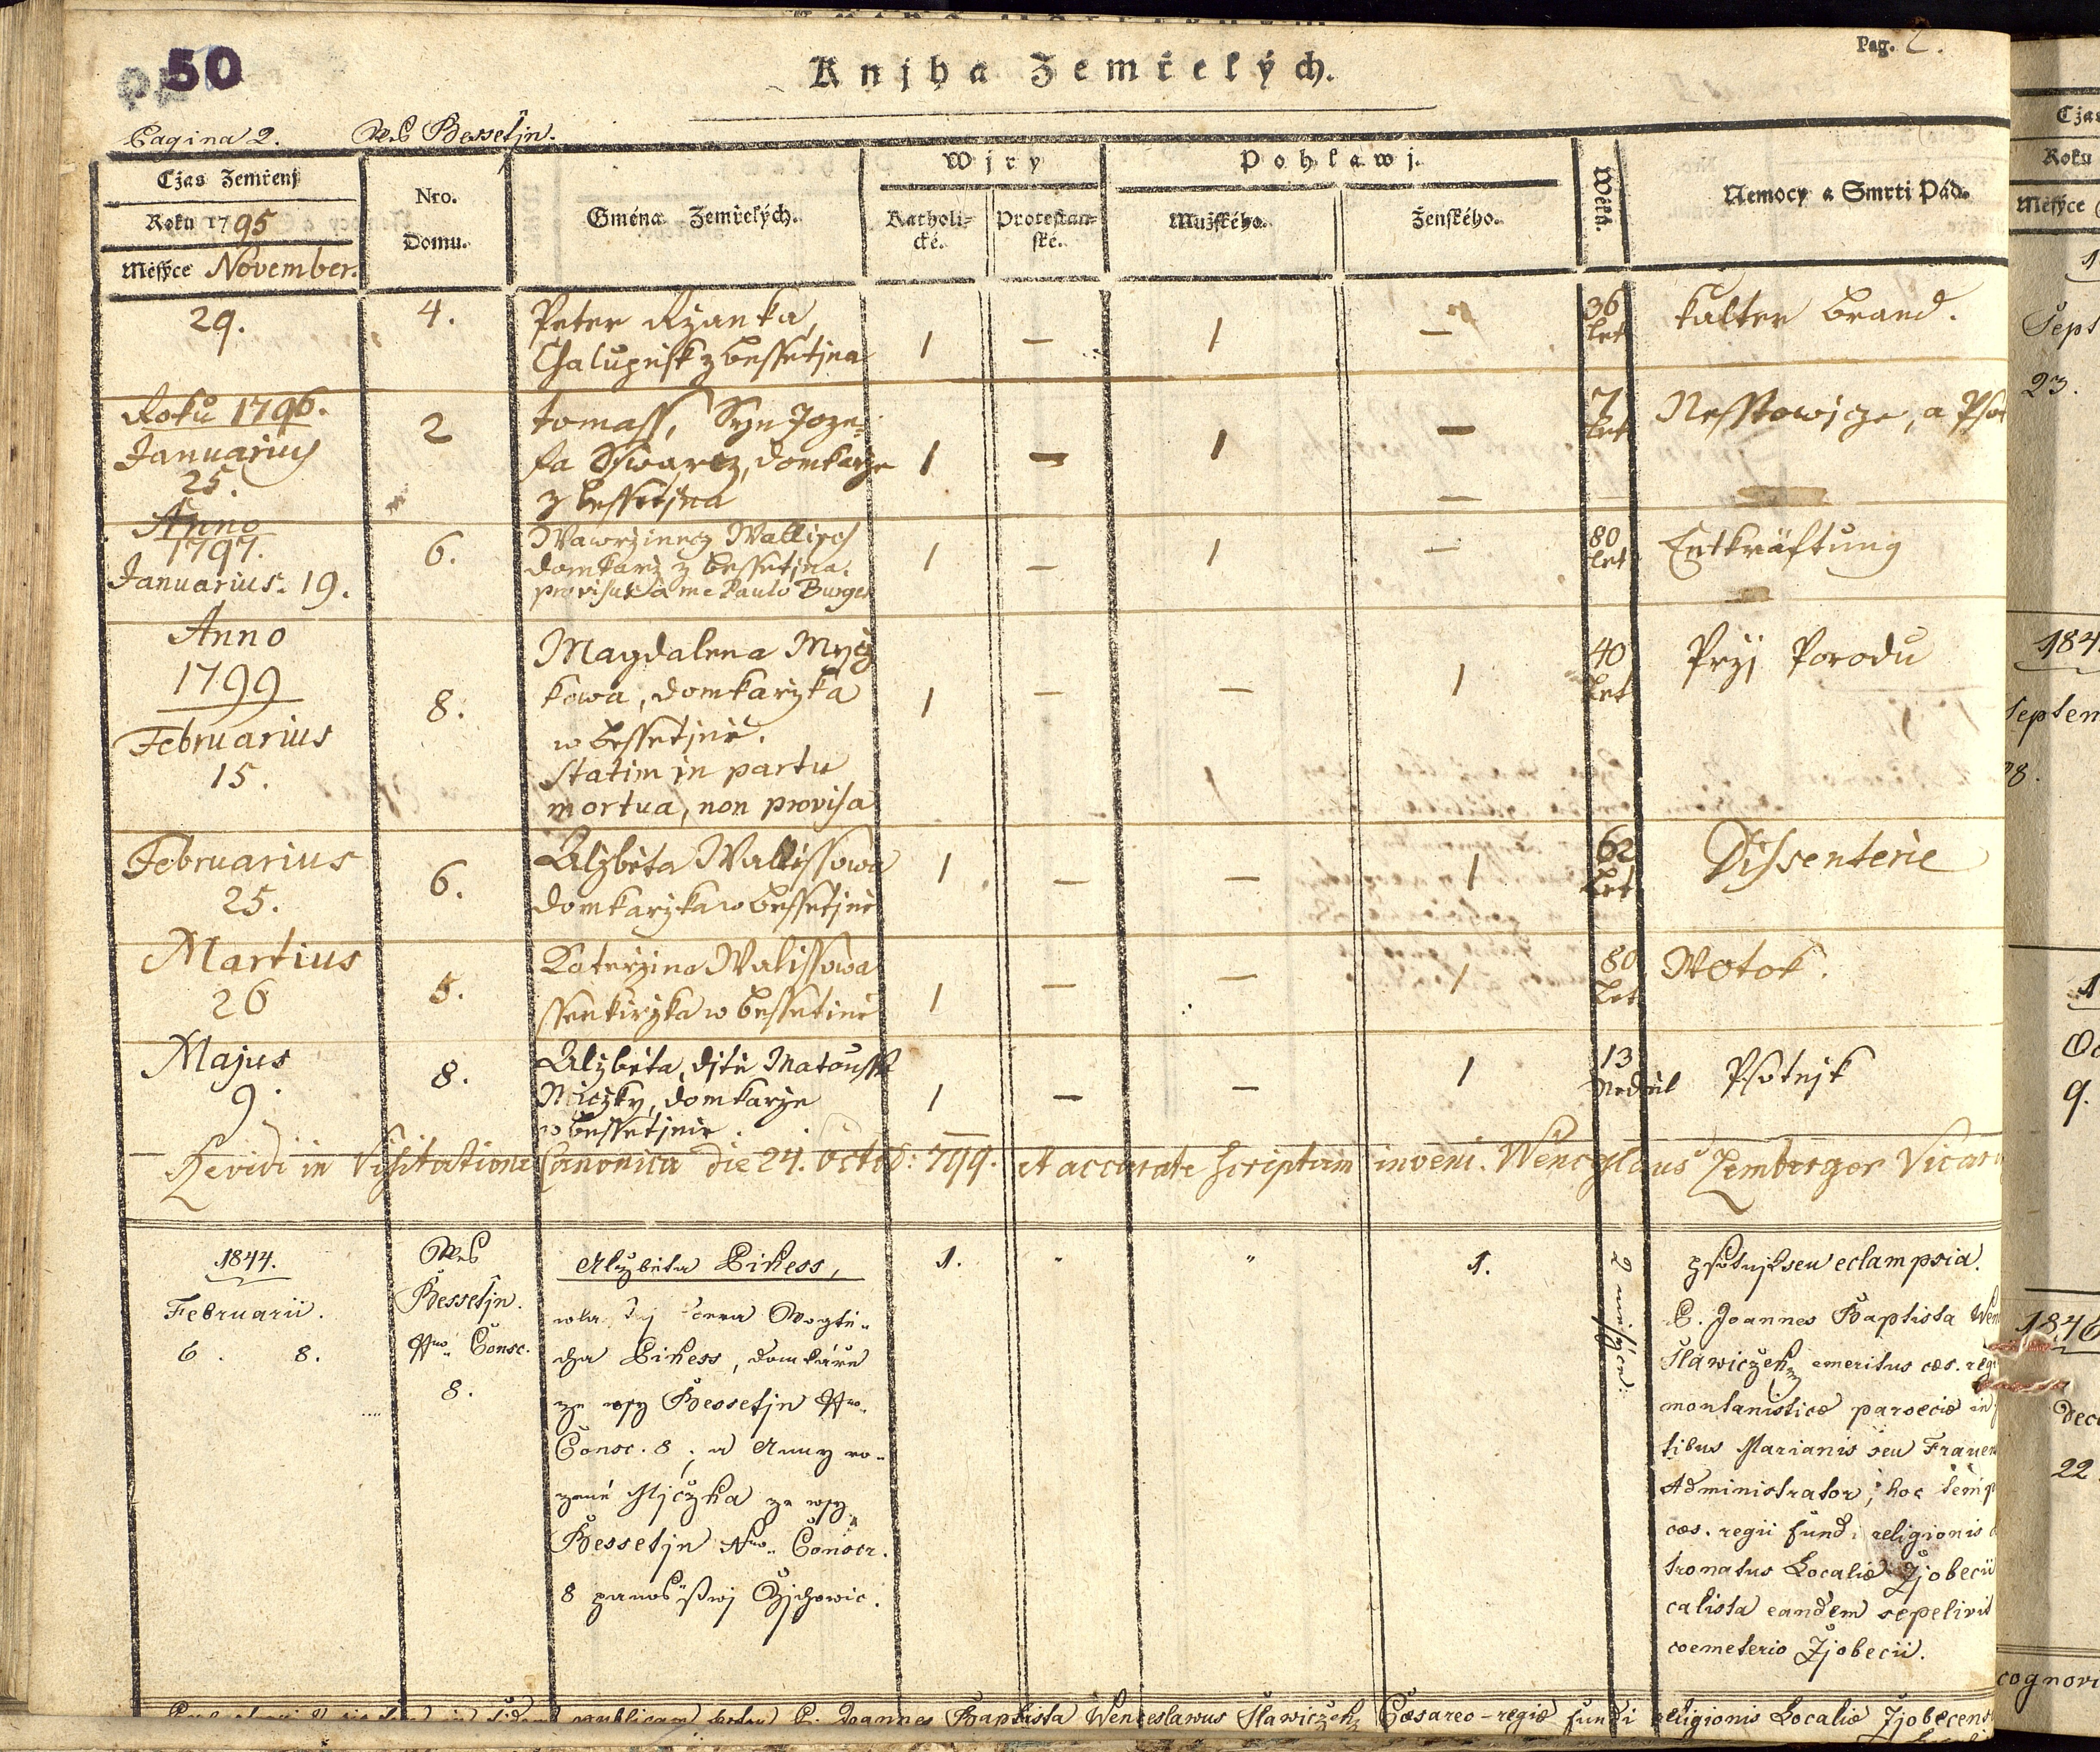 50
Knjha Zemřelých.
Pag. 2.
Pagina 2. Wes Bessetjn.
Cžas Zemřenj
Roku 1795
Měsýce November.
Nro.
Domu.
Gména Zemřelých.
Wjry
Katholi-
cké.
Protestan-
ské.
Pohlawj.
Mužského.
Ženského.
Wěku.
Nemocy a Smrti Pád.
29.
4.
Peter Ržanka,
Chalupnik z bessetjna
1 — 1 —
36
let
kalter brand.
Roku 1796.
Januarius
25.
2
tomass, Syn Joze-
fa Sswarcz, domkarze
z bessetjna
1 — 1 —
7
let
Nesstowjcze, a Pso
Anno
1797.
Januarius. 19.
6.
Wawrzinecz Wallisch
domkarz z bessetjna.
provisus a me Paulo Burger
1 — 1 —
80
let
Entkräftung
Anno
1799
Februarius
15.
8.
Magdalena Mycz
kowa, domkarzka
w bessetjnie.
statim in partu
mortua, non provisa
1 — — 1
40
let
Przj Porodu
Februarius
25.
6.
Alzbieta Wallissowa
domkarzka w bessetjnie
1 — — 1
62
let
Dissenterie
Martius
26
5.
Katerzina Walissowa
ssenkirzka w bessetinie
1 — — 1
80
let
Wotok.
Majus
9.
8.
Alzbieta, djtie Matoussе
Miczky, domkarze
w bessetjnie.
1 — — 1
13
Nediel
Psotnjk
Revidi in Visitatione Canonica die 24. Octob: 799. et accurate scriptum inveni. Wenceslaus Zemberger Vicari
1844.
Februarii.
6. 8.
Wes
Bessetjn.
Nro Consc.
8.
Alzbieta Bikess,
dcera Wogtie-
cha Bikess, domkáře
ze wsy Bessetjn Nro.
Consc. 8, a Anny ro-
zené Mjczka ze wsy
Bessetjn Nro. Conscr.
8 panstwj Czjchowic.
1. " " 1.
psotnjk seu eclampsia.
P. Joannes Baptista Wen
Slawiczek emeritus cæs. regi
montanisticæ paroeciæ in
tibus Marianis seu Frauen
Administrator, hoc temp
cæs. regii fundi religionis
tronatus Localiæ Zjobecii
calista eandem sepelivit
coemeterio Zjobecii.
publicam Joannes Baptista Wenceslawus Slawiczek Cæsareo-regiæ fundi religionis Localiæ Zjobecens
Cžas
Roku
Měsýce
Sept
23.
184
Septem
28.
1
9.
1846
Dece
22.
cognovi